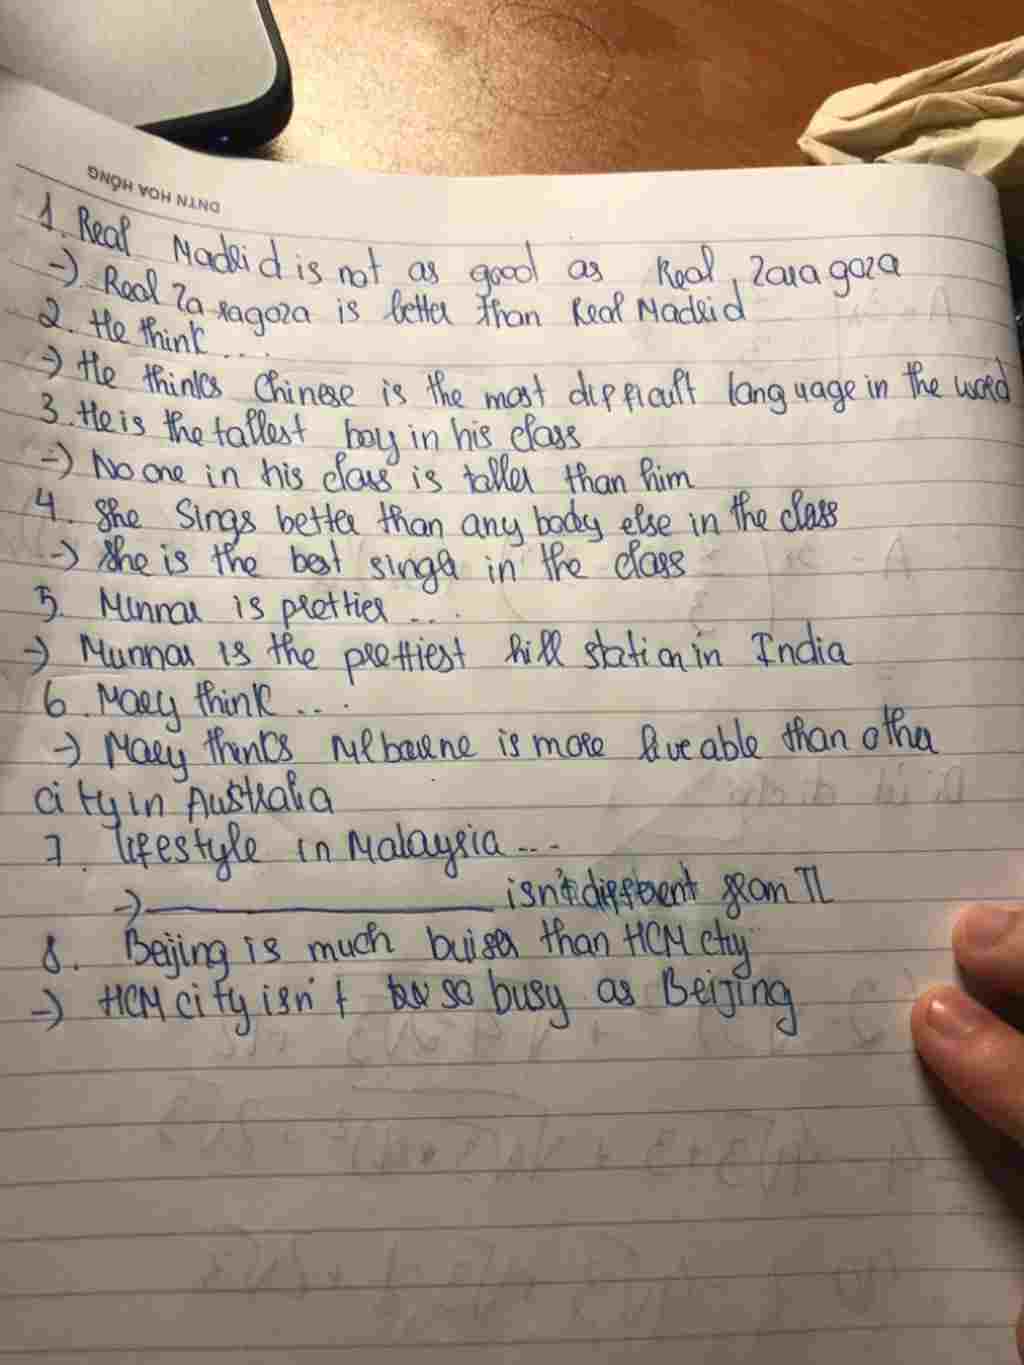 DNTN HOA HỒNG
1. Real Madrid is not as good as Real Zaragoza
-) Real Zaragoza is better than Real Madrid
2. He think ....
-) He thinks Chinese is the most difficult language in the word
3. He is the tallest boy in his class
-) No one in his class is taller than him
4. She Sings better than any body else in the class
-) She is the best singer in the class
5. Munnar is prettier ....
-) Munnar is the prettiest hill station in India
6. Mary think ....
-) Mary thinks Melbourne is more liveable than other
city in Australia
7. lifestyle in Malaysia ...
-) ____________ isn't different from TL
8. Beijing is much buiser than HCM city
-) HCM city isn't so busy as Beijing